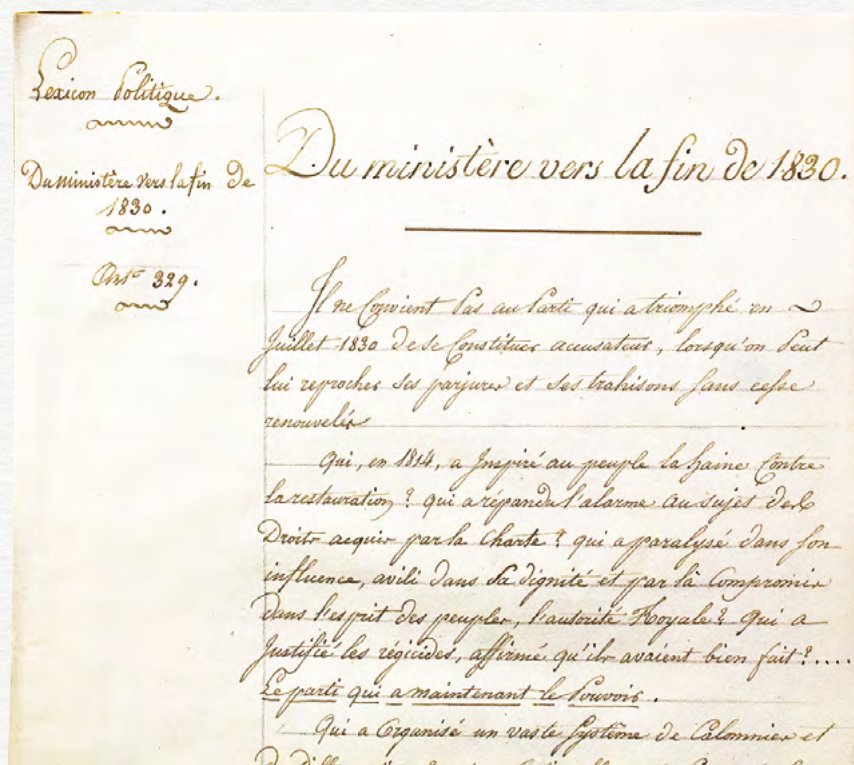 Lexicon Politique.
Du ministère vers la fin de
1830.
Art.e 329.
Du ministère vers la fin de 1830.
Il ne Convient Pas au Parti qui a triomphé en
Juillet 1830 de se Constituer accusateur, lorsqu'on Peut
lui reprocher ses parjures et ses trahisons sans cesse
renouvelés
Qui, en 1814, a Inspiré au peuple la haine Contre
la restauration ? qui a répandu l'alarme au sujet des
Droits acquis par la Charte ? qui a paralysé dans son
influence, avili dans sa dignité et par là Compromis
dans l'esprit des peuples, l'autorité Royale ? Qui a
Justifié les régicides, affirmé qu'ils avaient bien fait ?....
Le parti qui a maintenant le Pouvoir.
Qui a Organisé un vaste Système de Calomnies et